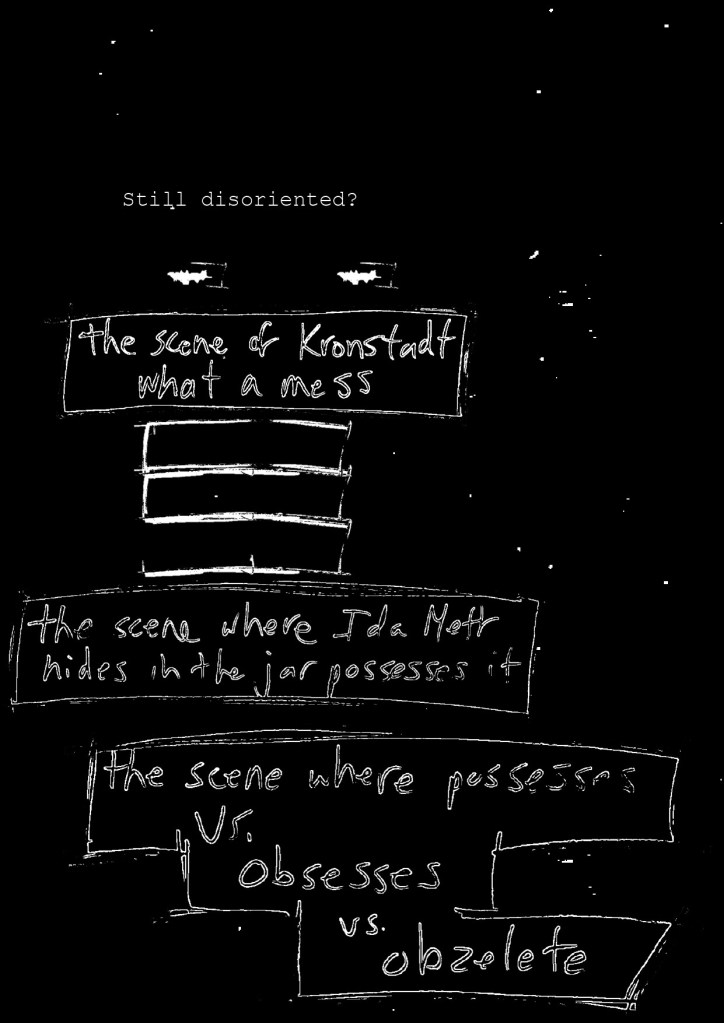 Still disoriented?
the scene of Kronstadt
what a mess
the scene where Ida Mett
hides in the jar possesses it
the scene where possesses
vs.
obsesses
vs.
obzelete